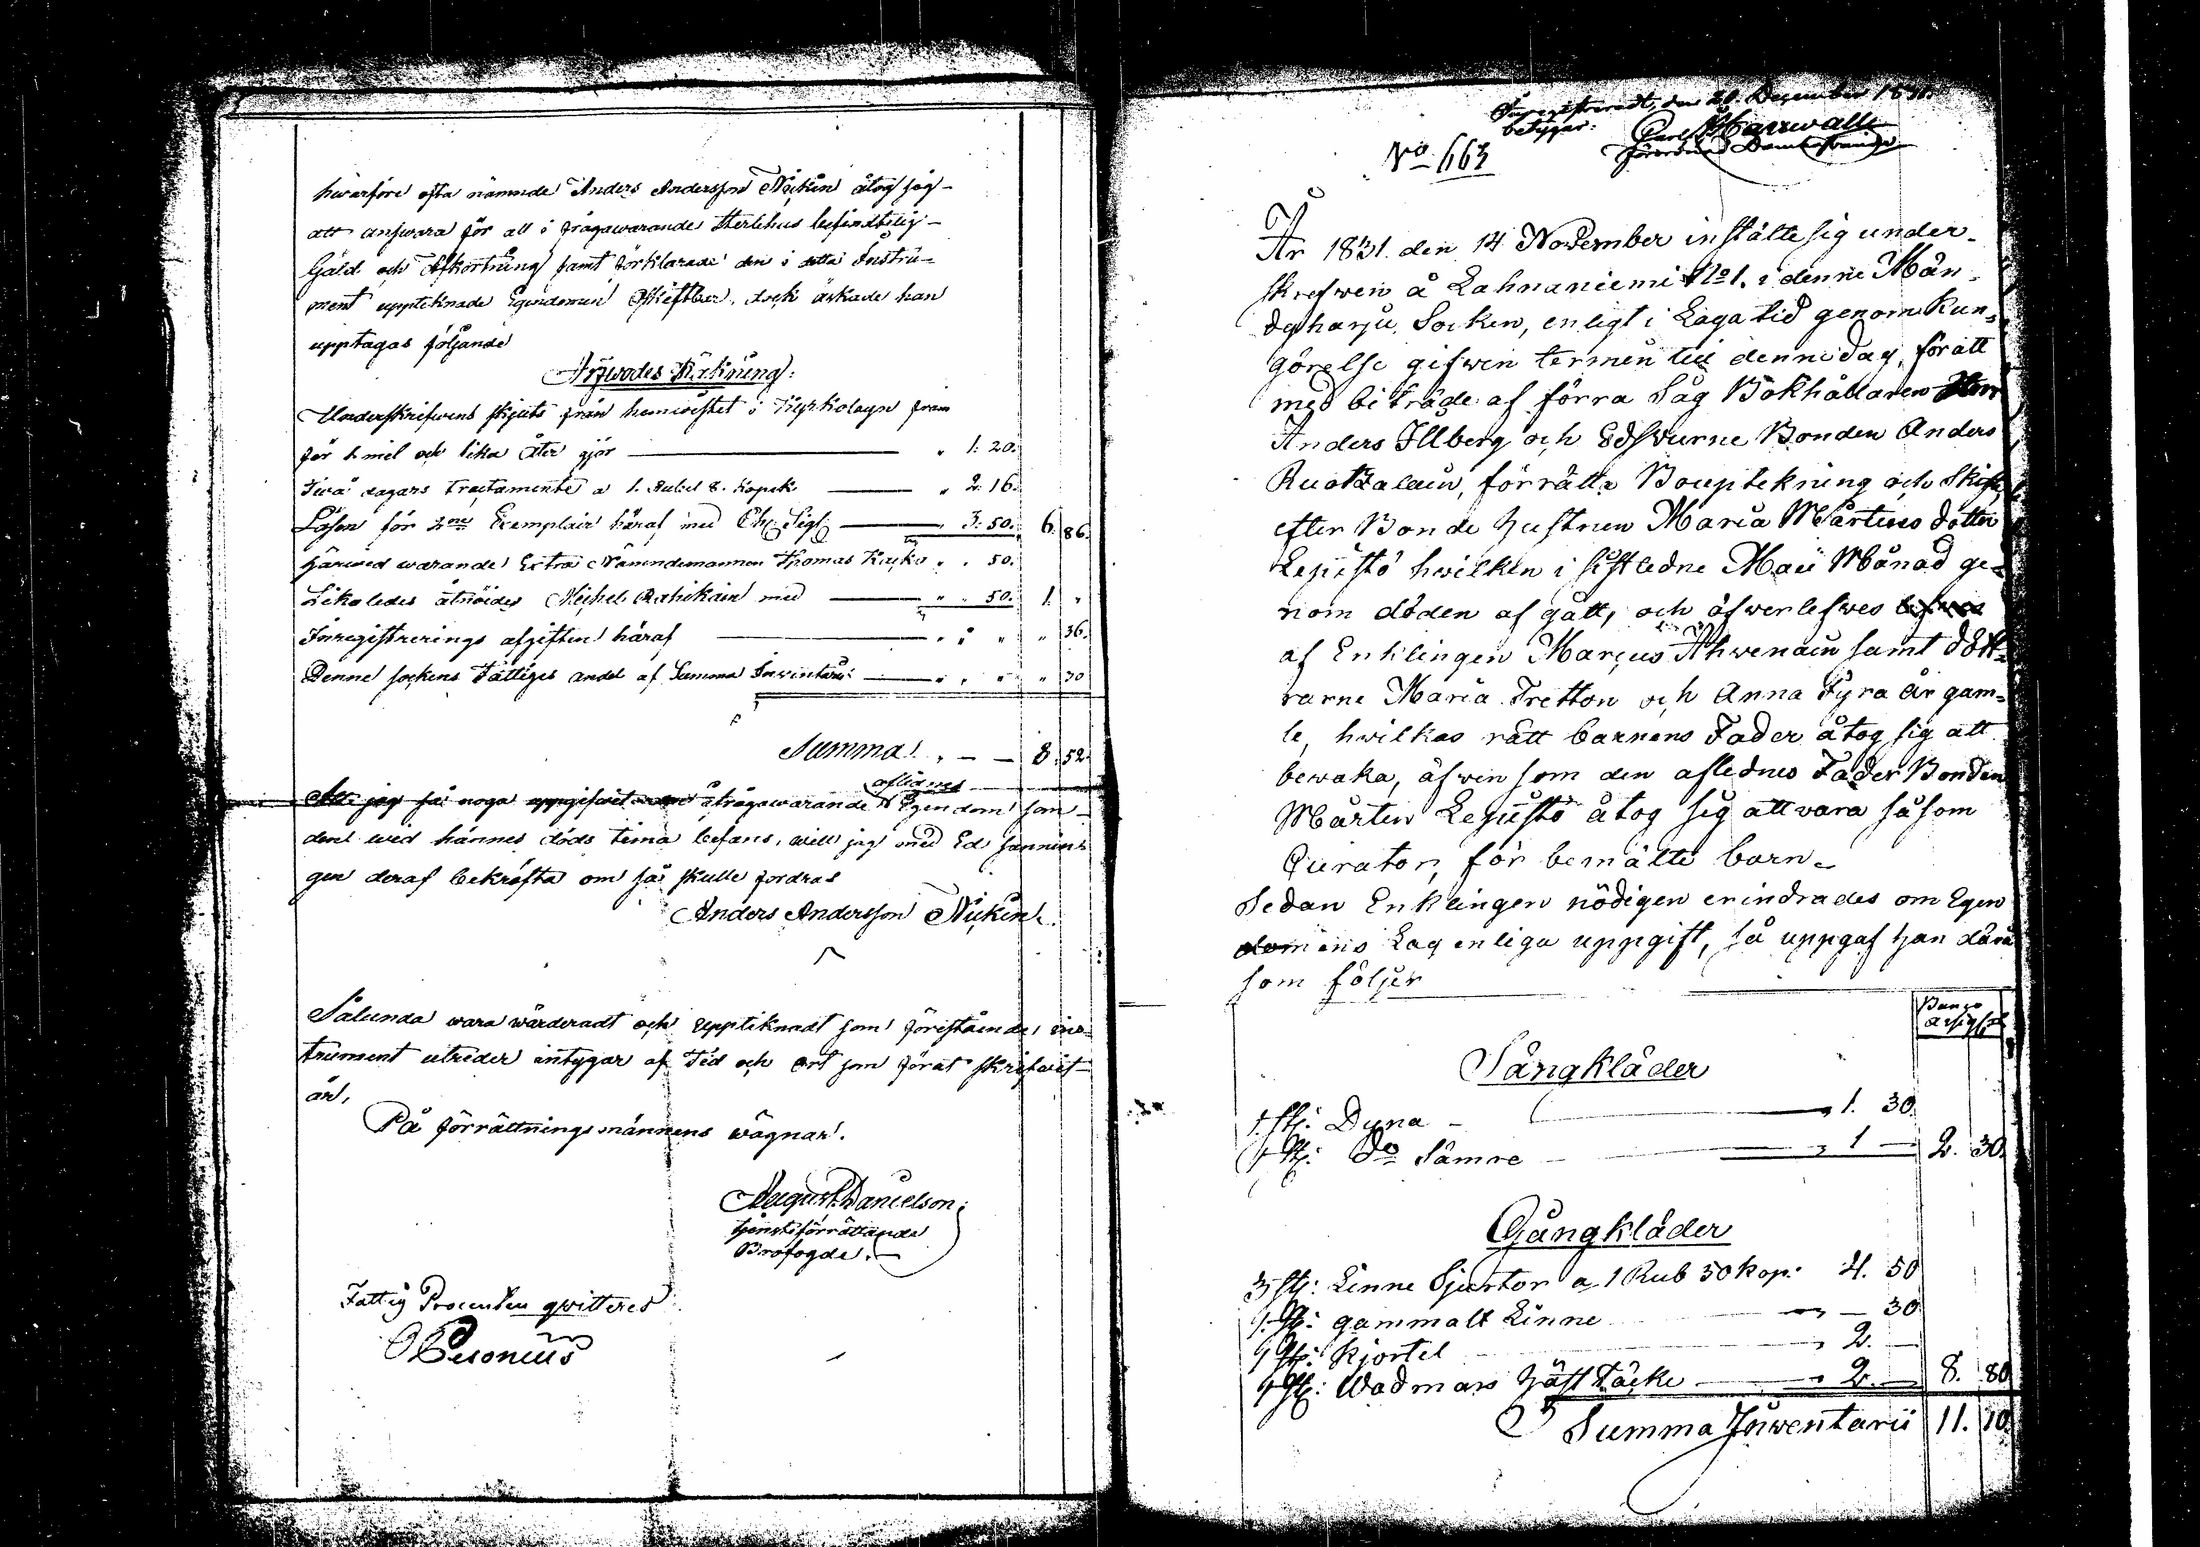 hwarföre ofta nämnde Anders Andersson Nickin åtog sig
att answara för all i frågawarande Sterbhus befindtelig
Gäld och Afkortning samt förklarade den i detta Instru-
ment uppteknade Egendomen Oskiftber, dock äskade han
upptagas följande
Arfwodes Räkning:
Underskrifwens skjuts från hemwistet i Kyrkobyn fram
för 1. mil och lika åter gjör 1: 20.
Twå dagars tractamente a 1. Rubel 8. kopek 2. 16.
Lösen för 2ne Exemplair häraf med Ch. Sigl. 3: 50. 6. 86.
Härwid warande Extra Nämndemannen Thomas 50.
Likaledes åtnöides Michel Rahikain med 50. 1. "
Inregistrerings afgiften häraf " 36.
Denne sockens Fattiges andel af Summa Inwentarii " 30
Summa 8. 52.
aflidnes
Att jag så noga uppgifwit ifrågawarande Egendom som
den wid hännes döds tima befans, will jag med Ed sannin-
gen deraf bekräfta om så skulle fordras
Anders Andersson Nickin.
Sålunda wara wärderadt och uppteknadt som förestående ins-
trument utreder intygar af Tid och Ort som förut skrifwit
är,
På förrättningsmännens wägnar.
August Danielson.
tjensteförrättande
Brofogde.
Fattig Procenten qwitteres
Inregistreradt, den 20. December 1831.
betygar:
Carl
Förordnad Domhafwande
No 663
År 1831. den 14 November instälte sig under-
skrefwen å Lahnaniemi No 1. i denne Män-
dyharju Socken, enligt i Laga tid genom Kun-
görelse gifwen termin till denne dag, för att
med biträde af förra Såg Bokhållaren Herr
Anders Illberg och Edsvurne Bonden Anders
Ruotzalain, förrätta Bouptekning och Skifte
efter Bonde Hustrun Maria Mårtens dotter
Lepistö hwilken i sistledne Maii Månad ge-
nom döden af gått, och öfwerlefwes
af Enklingen Marcus Ahwenain samt dött-
rarne Maria Tretton och Anna Fyra år gam-
le, hwilkas rätt barnens Fader åtog sig att
bewaka, äfwen som den aflednes Fader Bonden
Mårten Lepistö åtog sig att vara såsom
Curator, för bemälte barn.
Sedan Enklingen nödigen erindrades om Egen
domens Lagenliga uppgift, så uppgaf han däraf
som följer
Banco
assign
Sängkläder
1 st: Dyna 1. 30.
1 st: Do Sämre 1 — 2. 30.
Gångkläder
3 st: Linne Sjortor a 1 Rub 50 kop: 4. 50
1 st: gammalt Linne — 30
1 st: kjortel 2. —
1 st: Wadmars Häst täcke 2. — 8. 80
Summa Inwentarii 11. 10.